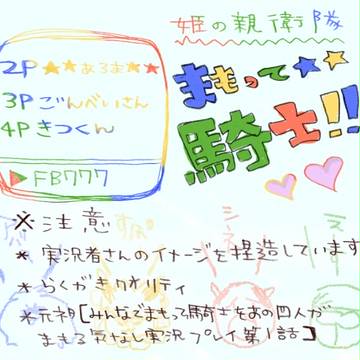 姫の親衛隊
まもって★★
騎士!!
2P ★★あろま★★
3P ごんべいさん
4P きっくん
▶FB777
※注意
* 実況者さんのイメージを捏造しています
* らくがきクオリティ
* 元祖[みんなでまもって騎士をあの四人が
まもる気なし実況プレイ第1話]